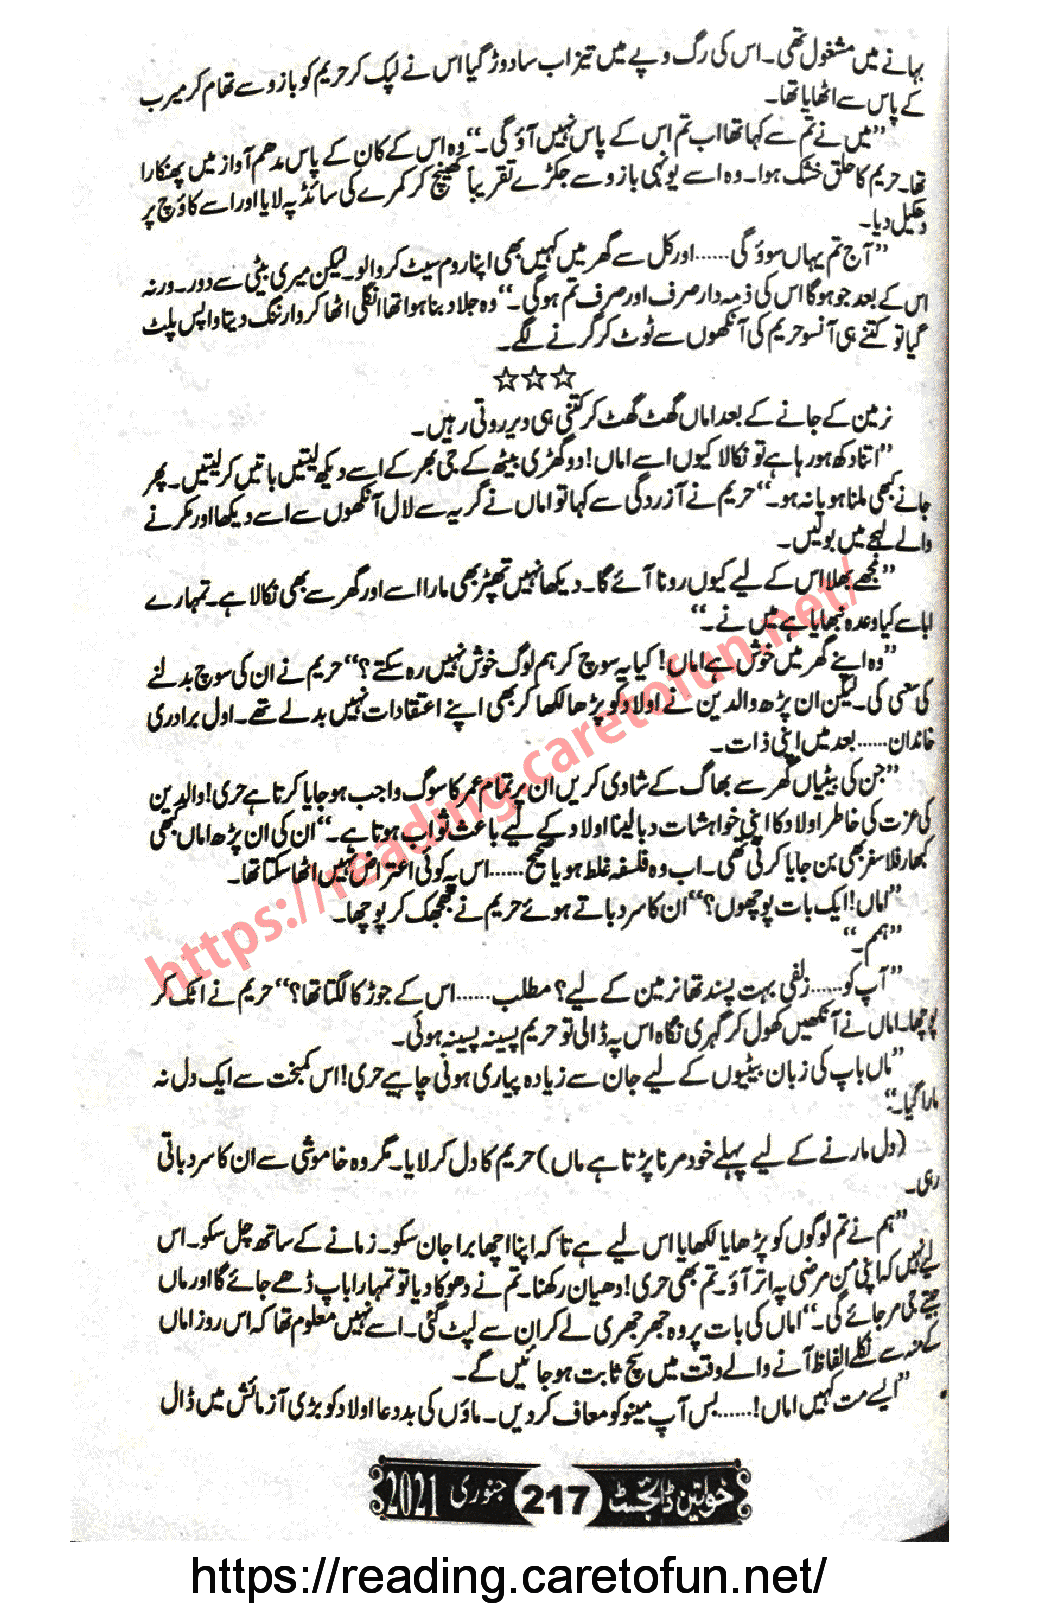 بہانے میں مشغول تھی۔ اس کی رگ و پے میں تیزاب سا دوڑ گیا اس نے لپک کر حریم کو بازو سے تھام کر میرب
کے پاس سے اٹھایا تھا۔
”میں نے تم سے کہا تھا اب تم اس کے پاس نہیں آؤ گی۔“ وہ اس کے کان کے پاس مدھم آواز میں پھنکارا
تھا۔ حریم کا حلق خشک ہوا۔ وہ اسے یونہی بازو سے جکڑے تقریباً کھینچ کر کمرے کی سائڈ پہ لایا اور اسے کاؤچ پر
دھکیل دیا۔
”آج تم یہاں سوؤ گی...... اور کل سے گھر میں کہیں بھی اپنا روم سیٹ کروالو۔ لیکن میری بیٹی سے دور۔ ورنہ
اس کے بعد جو ہوگا اس کی ذمہ دار صرف اور صرف تم ہوگی۔“ وہ جلاد بنا ہوا تھا انگلی اٹھا کر وارننگ دیتا واپس پلٹ
گیا تو کتنے ہی آنسو حریم کی آنکھوں سے ٹوٹ کر گرنے لگے۔
☆☆☆
نرمین کے جانے کے بعد اماں گھٹ گھٹ کر کتنی ہی دیر روتی رہیں۔
”اتنا دکھ ہو رہا ہے تو نکالا کیوں اسے اماں! دو گھڑی بیٹھ کے جی بھر کے اسے دیکھ لیتیں باتیں کر لیتیں۔ پھر
جانے کبھی ملنا ہو یا نہ ہو۔“ حریم نے آزردگی سے کہا تو اماں نے گریہ سے لال آنکھوں سے اسے دیکھا اور مکرنے
والے لہجے میں بولیں۔
”مجھے بھلا اس کے لیے کیوں رونا آئے گا۔ دیکھا نہیں تھپڑ بھی مارا اسے اور گھر سے بھی نکالا ہے۔ تمہارے
ابا سے کیا وعدہ نبھایا ہے میں نے۔“
”وہ اپنے گھر میں خوش ہے اماں! کیا یہ سوچ کر ہم لوگ خوش نہیں رہ سکتے؟“ حریم نے ان کی سوچ بدلنے
کی سعی کی۔ لیکن ان پڑھ والدین نے اولاد کو پڑھا لکھا کر بھی اپنے اعتقادات نہیں بدلے تھے۔ اول برادری
خاندان...... بعد میں اپنی ذات۔
”جن کی بیٹیاں گھر سے بھاگ کے شادی کریں ان پر تمام عمر کا سوگ واجب ہو جایا کرتا ہے حری! والدین
کی عزت کی خاطر اولاد کا اپنی خواہشات دبا لینا اولاد کے لیے باعث ثواب ہوتا ہے۔“ ان کی ان پڑھ اماں کبھی
کبھار فلاسفر بھی بن جایا کرتی تھی۔ اب وہ فلسفہ غلط ہو یا صحیح...... اس پہ کوئی اعتراض نہیں اٹھا سکتا تھا۔
”اماں! ایک بات پوچھوں؟“ ان کا سر دباتے ہوئے حریم نے جھجک کر پوچھا۔
”ہمم۔“
”آپ کو...... زلفی بہت پسند تھا نرمین کے لیے؟ مطلب...... اس کے جوڑ کا لگتا تھا؟“ حریم نے اٹک کر
پوچھا۔ اماں نے آنکھیں کھول کر گہری نگاہ اس پہ ڈالی تو حریم پسینہ پسینہ ہوئی۔
”ماں باپ کی زبان بیٹیوں کے لیے جان سے زیادہ پیاری ہونی چاہیے حری! اس کمبخت سے ایک دل نہ
مارا گیا۔“
(دل مارنے کے لیے پہلے خود مرنا پڑتا ہے ماں) حریم کا دل کرلایا۔ مگر وہ خاموشی سے ان کا سر دباتی
رہی۔
”ہم نے تم لوگوں کو پڑھایا لکھایا اس لیے ہے تاکہ اپنا اچھا برا جان سکو۔ زمانے کے ساتھ چل سکو۔ اس
لیے نہیں کہ اپنی من مرضی پہ اتر آؤ۔ تم بھی حری! دھیان رکھنا۔ تم نے دھوکا دیا تو تمہارا باپ ڈھے جائے گا اور ماں
جیتے جی مر جائے گی۔“ اماں کی بات پر وہ جھرجھری لے کر ان سے لپٹ گئی۔ اسے نہیں معلوم تھا کہ اس روز اماں
کے منہ سے نکلے الفاظ آنے والے وقت میں سچ ثابت ہو جائیں گے۔
”ایسے مت کہیں اماں!...... بس آپ مینو کو معاف کر دیں۔ ماؤں کی بددعا اولاد کو بڑی آزمائش میں ڈال
خواتین ڈائجسٹ 217 جنوری 2021
https://reading.caretofun.net/
https://reading.caretofun.net/